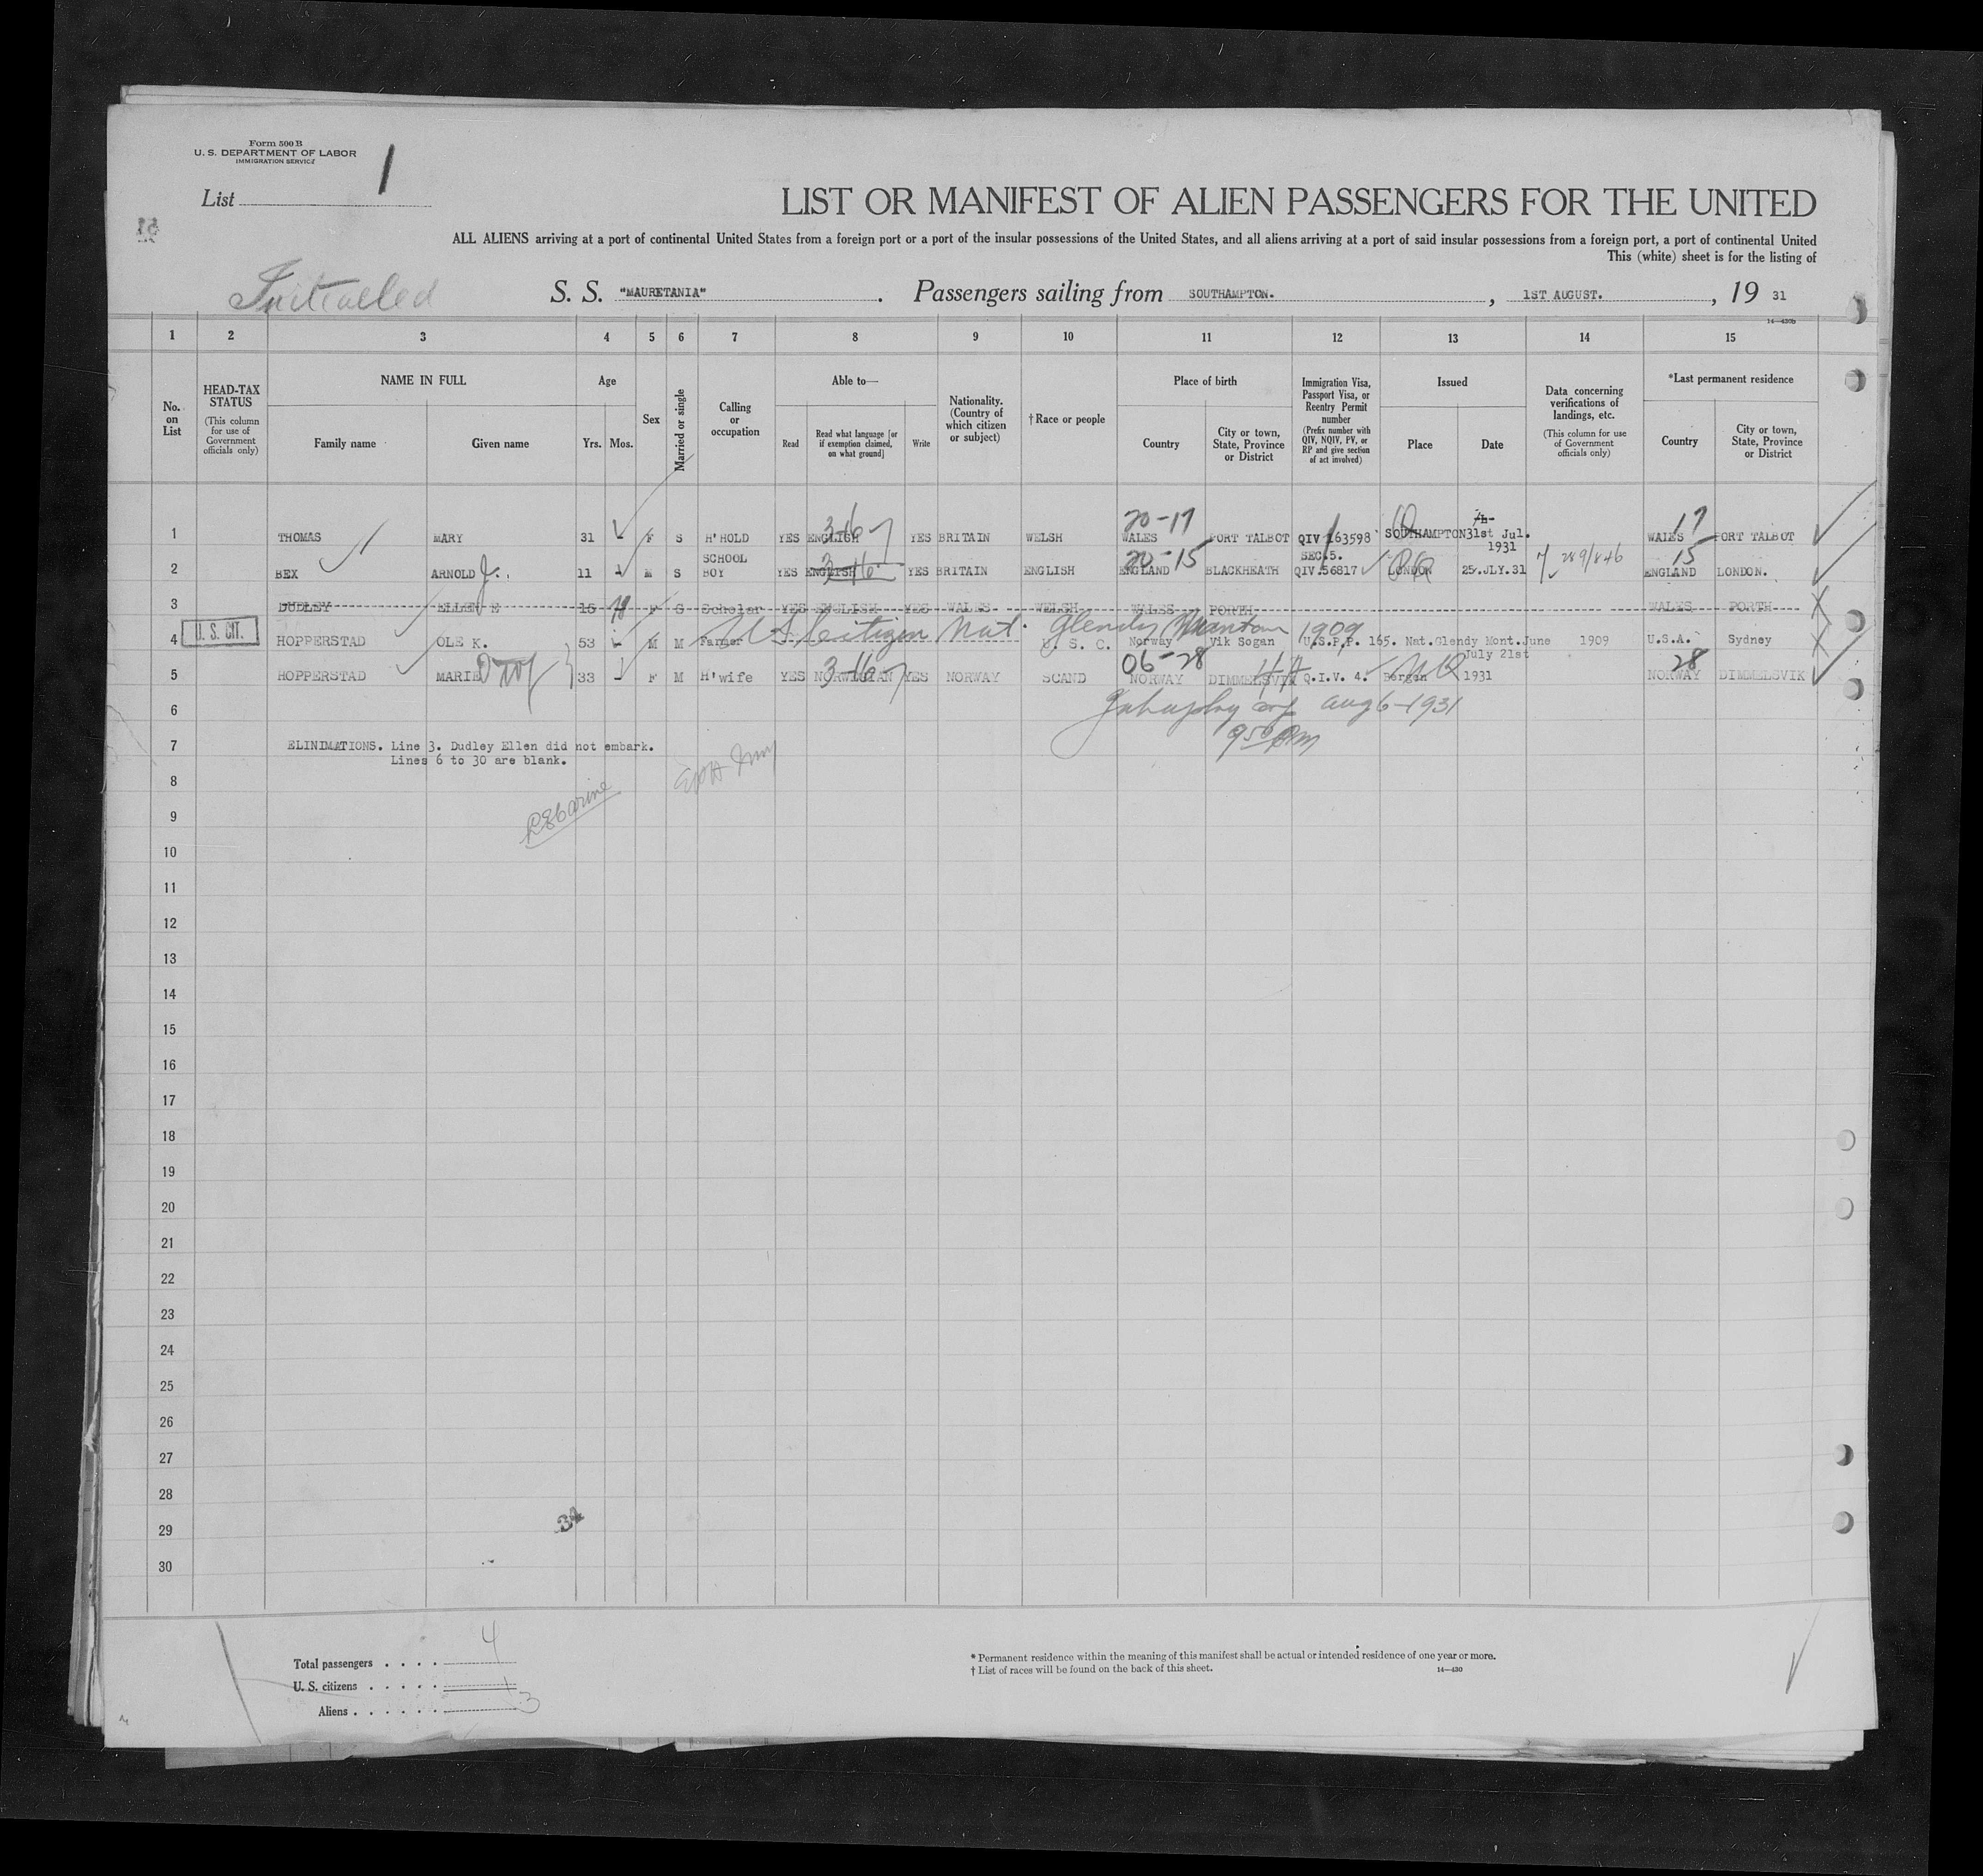 Form 500 B
U. S. DEPARTMENT OF LABOR
IMMIGRATION SERVICE
List 1
LIST OR MANIFEST OF ALIEN PASSENGERS FOR THE UNITED
ALL ALIENS arriving at a port of continental United States from a foreign port or a port of the insular possessions of the United States, and all aliens arriving at a port of said insular possessions from a foreign port, a port of continental United
This (white) sheet is for the listing of
S. S. "MAURETANIA". Passengers sailing from SOUTHAMPTON. , 1ST AUGUST. , 19 31
14—430b
1 2 3 4 5 6 7 8 9 10 11 12 13 14 15
No. on List
HEAD-TAX STATUS
(This column for use of Government officials only)
NAME IN FULL
Family name Given name
Age
Yrs. Mos.
Sex
Married or single
Calling or occupation
Able to—
Read Read what language [or if exemption claimed, on what ground] Write
Nationality. (Country of which citizen or subject)
†Race or people
Place of birth
Country City or town, State, Province or District
Immigration Visa, Passport Visa, or Reentry Permit number
(Prefix number with QIV, NQIV, PV, or RP and give section of act involved)
Issued
Place Date
Data concerning verifications of landings, etc.
(This column for use of Government officials only)
*Last permanent residence
Country City or town, State, Province or District
20-17 17
1 THOMAS MARY 31 F S H'HOLD YES ENGLISH YES BRITAIN WELSH WALES PORT TALBOT QIV 163598 SOUTHAMPTON 31st Jul. 1931 WALES PORT TALBOT
20-15 SEC.5. 15
2 BEX ARNOLD J. 11 M S SCHOOL BOY YES ENGLISH YES BRITAIN ENGLISH ENGLAND BLACKHEATH QIV.56817 LONDON 25.JLY.31 ENGLAND LONDON.
3 DUDLEY ELLEN E 15 F S Scholar YES ENGLISH YES WALES WELSH WALES PORTH WALES PORTH
U. S. CIT.
U S Citizen Nat. Glendy 1909
4 HOPPERSTAD OLE K. 53 M M Farmer U. S. C. Norway Vik Sogan U.S.P.P. 165. Nat.Glendy Mont.June 1909 U.S.A. Sydney
06-28 28
5 HOPPERSTAD MARIE 33 F M H'wife YES NORWEGIAN YES NORWAY SCAND NORWAY DIMMELSVIK Q.I.V. 4. Bergen July 21st 1931 NORWAY DIMMELSVIK
6 aug 6-1931
7 ELINIMATIONS. Line 3. Dudley Ellen did not embark.
Lines 6 to 30 are blank.
8
9
10
11
12
13
14
15
16
17
18
19
20
21
22
23
24
25
26
27
28
29
30
34
Total passengers . . . . 4
U. S. citizens . . . . . 1
Aliens . . . . . . 3
* Permanent residence within the meaning of this manifest shall be actual or intended residence of one year or more.
† List of races will be found on the back of this sheet. 14—430